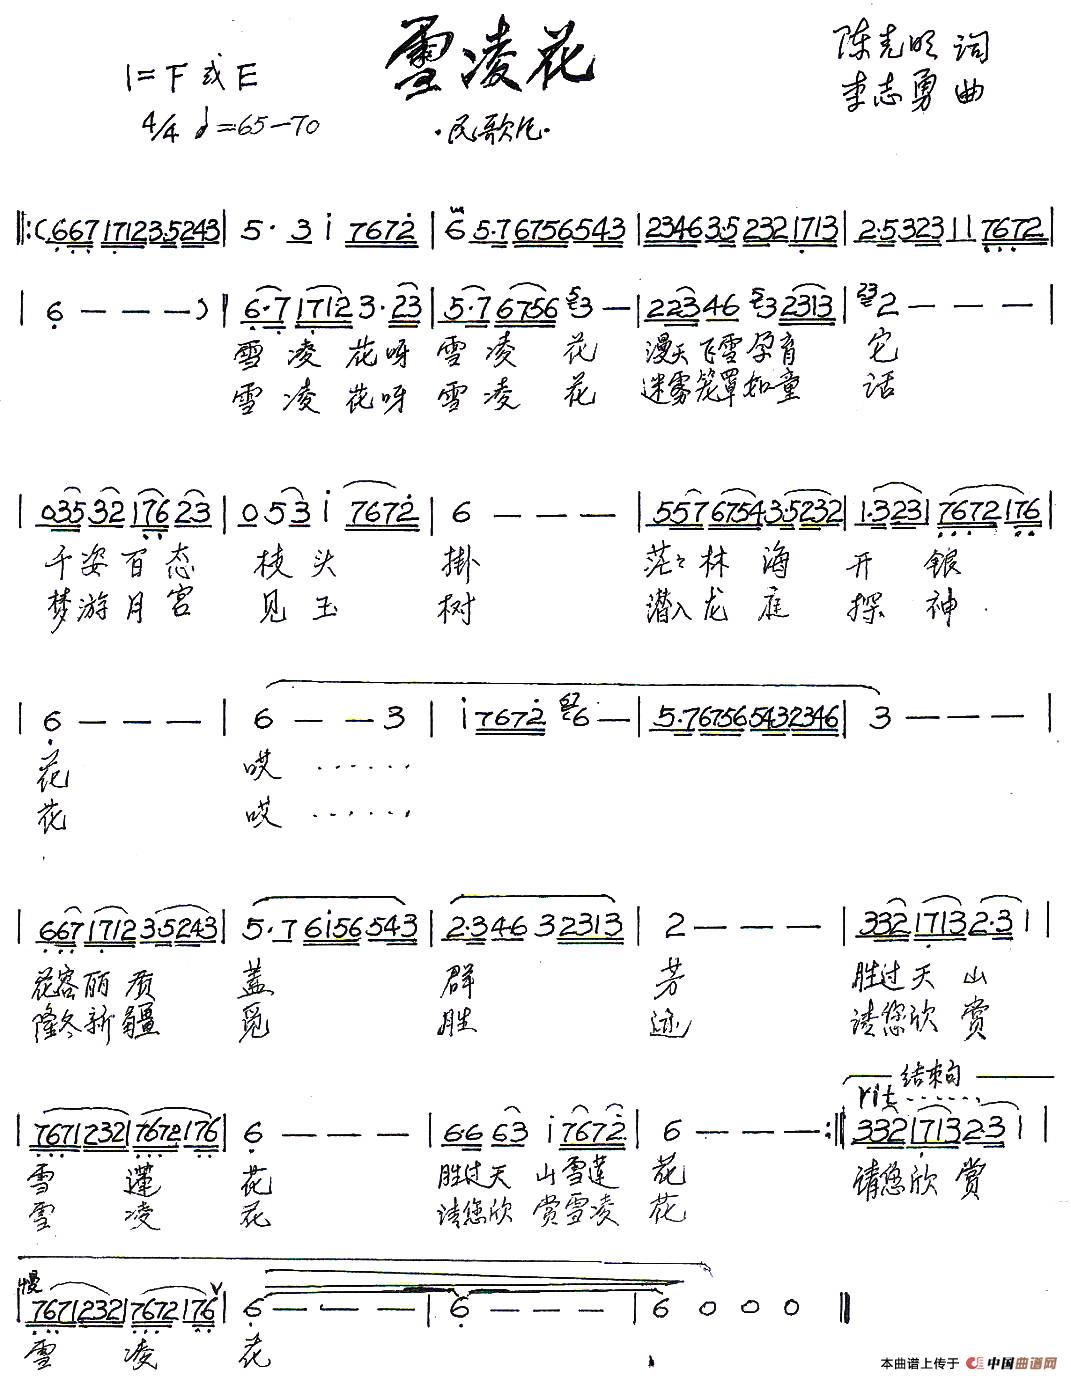 雪凌花
陈克明 词
1=F或E
李志勇 曲
4/4 =65—70
·民歌风·
(667 17123·5243 | 5· 3 i 7672 | 6 5·7 6756 543 | 2346 3·5 232 1713 | 2·5 323 11 7672 |
| 6 — — —) | 6·7 1712 3·23 | 5·7 6756 53 — | 223 46 53 2313 | 232 — — — |
雪凌花呀 雪凌花 漫天飞雪孕育它
雪凌花呀 雪凌花 迷雾笼罩如童话
| 035 32 176 23 | 0 53 i 7672 | 6 — — — | 557 6754 3·5232 | 1·323 7672 176 |
千姿百态 枝头 挂 茫々林海 开银
梦游月宫 见玉 树 潜入龙庭 探神
| 6 — — — | 6 — — 3 | i 7672 676 — | 5·7 6756 543 2346 | 3 — — — |
花 哎……
花 哎……
| 667 1712 3·5243 | 5·7 6i56 543 | 2·3 46 3 2313 | 2 — — — | 332 1713 2·3 1 |
花容丽质 盖 群 芳 胜过天山
隆冬新疆 觅 胜 迹 请您欣赏
rit 结束句
| 7671 232 7672 176 | 6 — — — | 66 63 i 7672 | 6 — — — :‖ 332 1713 2·3 1 |
雪莲 花 胜过天山雪莲 花 请您欣赏
雪凌 花 请您欣赏雪凌 花
慢
| 7671 232 7672 176 | 6 — — — | 6 — — — | 6 0 0 0 ‖
雪凌 花
本曲谱上传于 中国曲谱网